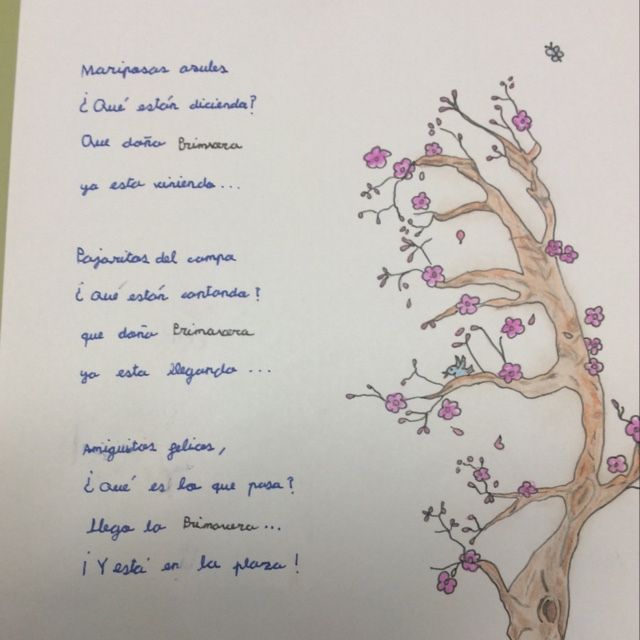 Mariposas azules
¿Qué están diciendo?
Que doña Primavera
ya esta viniendo...
Pajaritos del campo
¿Qué están cantando?
que doña Primavera
ya esta llegando...
Amiguitos felices,
¿Qué es lo que pasa?
Llego la Primavera...
¡Y está en la plaza!